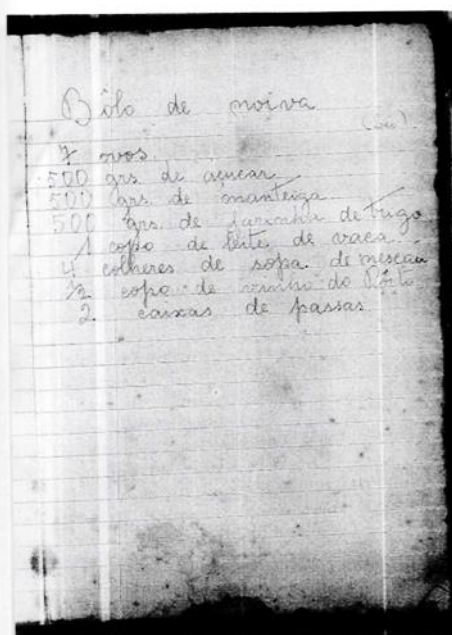 Bôlo de noiva
7 ovos
500 grs de açucar
500 grs de manteiga
500 grs de farinha de trigo
1 copo de leite de vaca
4 colheres de sopa de nescau
1/2 copo de vinho do Pôrto
2 caixas de passas